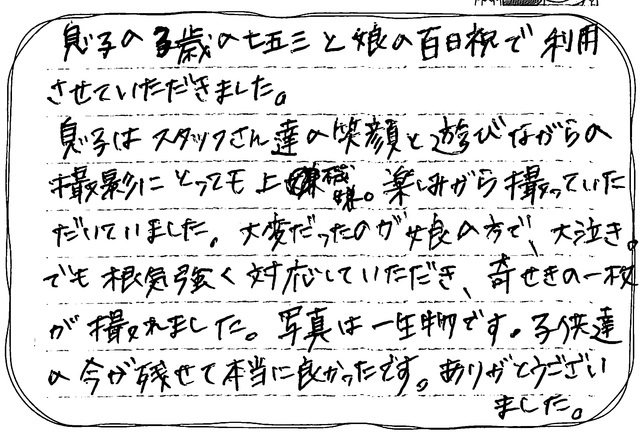 息子の3歳の七五三と娘の百日祝で利用
させていただきました。
息子はスタッフさん達の笑顔と遊びながらの
撮影にとっても上機嫌。楽しみがら撮っていた
だいていました。大変だったのが娘の方で、大泣き。
でも根気強く対応していただき、奇せきの一枚
が撮れました。写真は一生物です。子供達
の今が残せて本当に良かったです。ありがとうござい
ました。